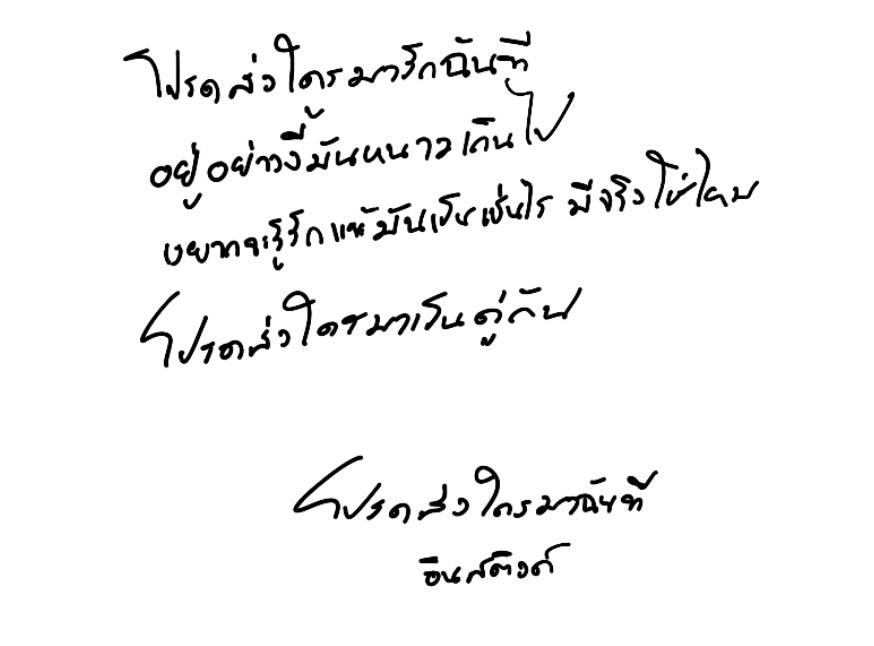 โปรดส่งใครมารักฉันที
อยู่อย่างงี้มันหนาวเกินไป
อยากจะรู้รักแท้มันเป็นเช่นไร มีจริงใช่ไหม
โปรดส่งใครมาเป็นคู่กัน
โปรดส่งใครมาฉันที
อินสติงต์